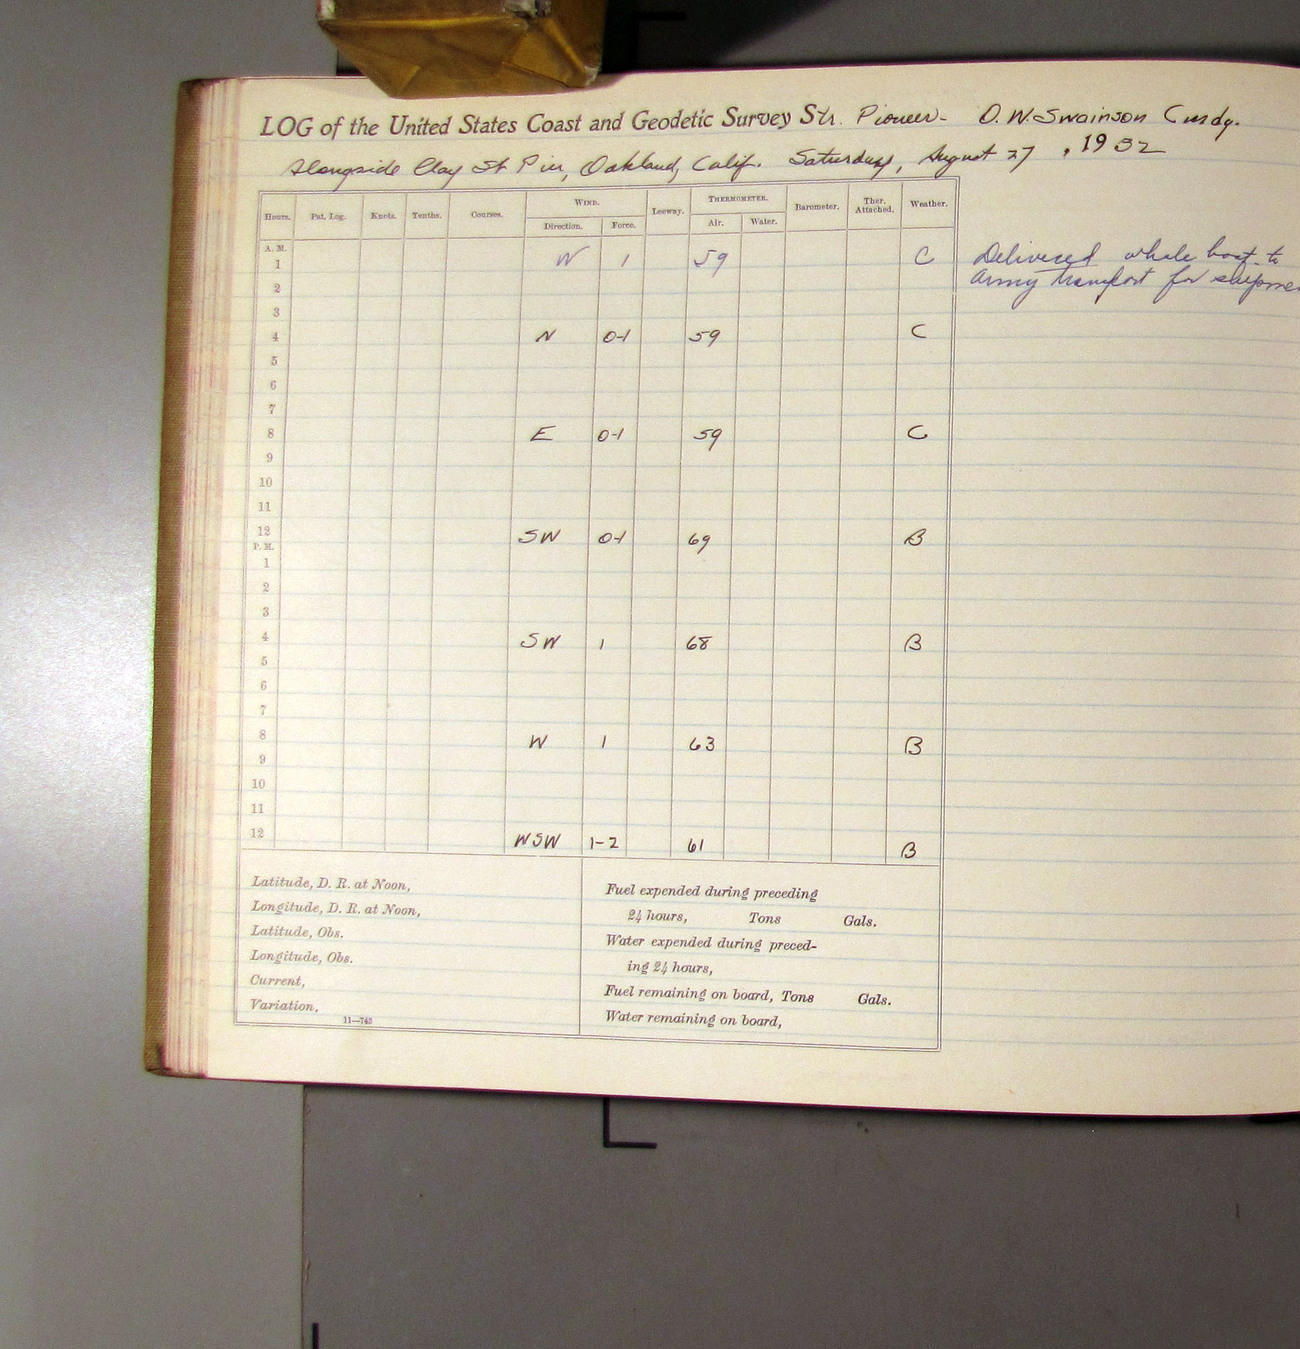 LOG of the United States Coast and Geodetic Survey Str. Pioneer - O. W. Swainson Cmdg.
Alongside Clay St Pier, Oakland, Calif. Saturday, August 27, 1932
Hours. Pat. Log. Knots. Tenths. Courses. WIND. Leeway. THERMOMETER. Barometer. Ther. Attached. Weather.
Direction. Force. Air. Water.
A. M.
1 W 1 59 C Delivered whale boat to
2 Army Transport for
3
4 N 0-1 59 C
5
6
7
8 E 0-1 59 C
9
10
11
12 SW 0-1 69 B
P. M.
1
2
3
4 SW 1 68 B
5
6
7
8 W 1 63 B
9
10
11
12 WSW 1-2 61 B
Latitude, D. R. at Noon,
Longitude, D. R. at Noon,
Latitude, Obs.
Longitude, Obs.
Current,
Variation,
11—743
Fuel expended during preceding
24 hours, Tons Gals.
Water expended during preced-
ing 24 hours,
Fuel remaining on board, Tons Gals.
Water remaining on board,